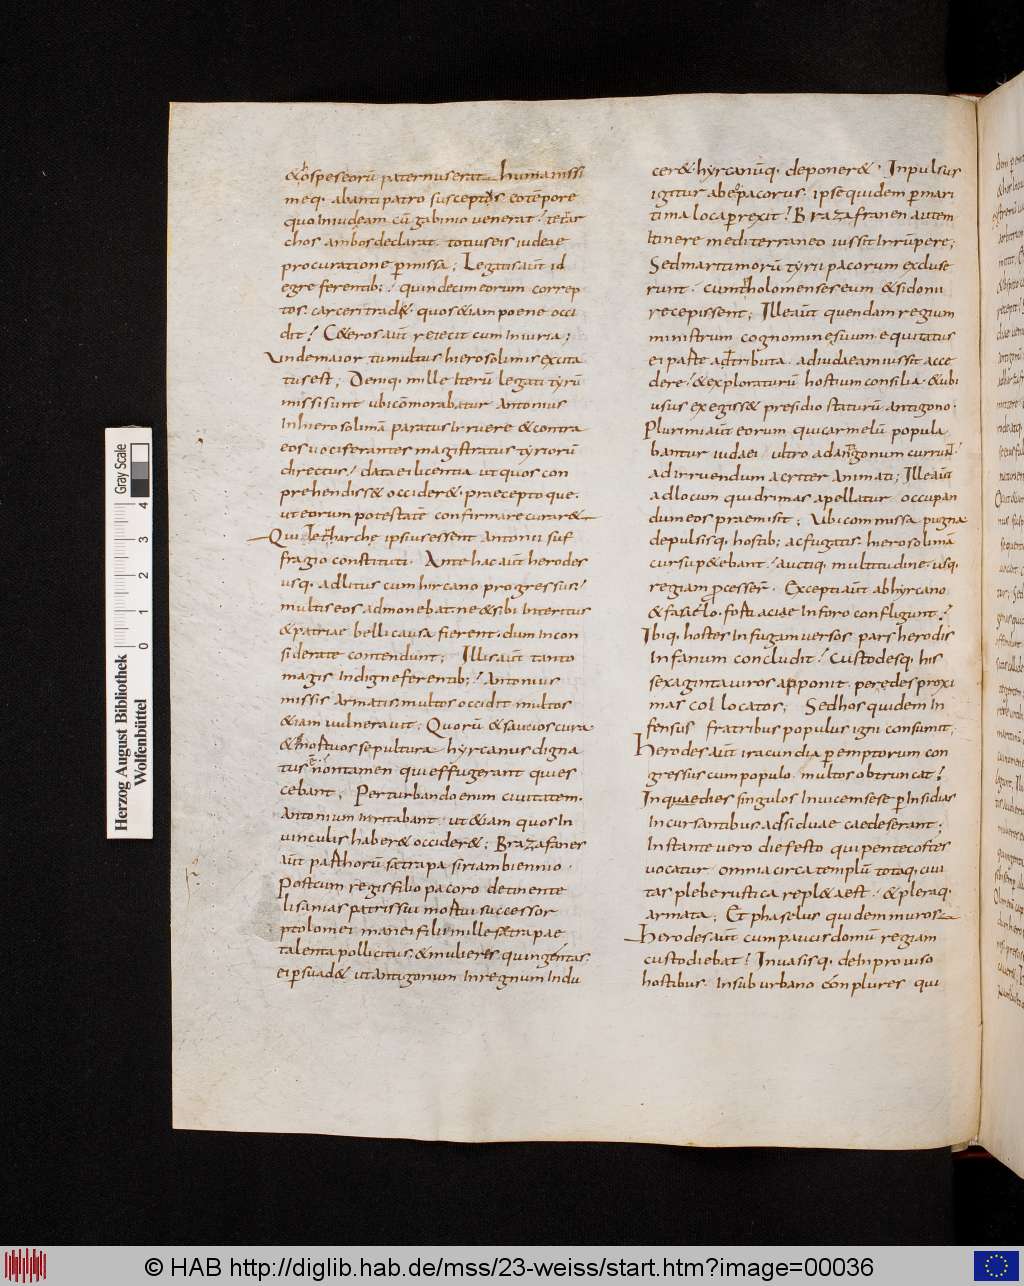 &hospes eorū paternus erat humanissi
meq· ab antipatro susceptus eo tēpore
quo in iudeam cū gabinio venerat· tetrar
chos ambos declarat· totius eis iudeae
procuratione pmissa; Legatis aūt id
egre ferentib;· quindecim eorum correp
tos carceri tradit· quos &iam poene occi
dit· C&eros aūt reiecit cum iniuria;
Unde maior tumultus hierosolimis excita
tus est; Deniq· mille iterū legati tyrū
missi sunt ubi cōmorabatur Antonius
In hierosolimā paratus irruere & contra
eos vociferantes magistratus tyriorū
directus· data ei licentia ut quos con
prehendiss& occider&· praecepto que·
ut eorum potestatē confirmare curar&
Qui tetrharche ipsius essent Antonii suf
fragio constituti· Ante hac aūt herodes
usq· ad litus cum hircano progressus·
multis eos admonebat ne & sibi interitus
& patriae belli causa fierent· dum incon
siderate contendunt; Illis aūt tanto
magis indigne ferentib;· Antonius
missis armatis multos occidit multos
&iam vulneravit· Quorū & saucios cura
& mortuos sepultura hyrcanus digna
tus ē· non tamen qui effugerant quies
cebant; Perturbando enim civitatem·
Antonium irritabant· ut &iam quos in
vinculis haber& occider&; Brazafanes
aūt parthorū satrapa siriam biennio·
Postcum regis filio pacoro detinente
lisanias patris sui mortui successor
ptolomei mannei filii mille satrapae
talenta pollicitus· & mulieres quingentas
ei psuad& ut antigonum in regnum indu
cer& hyrcanūq· deponer&· Inpulsus
igitur ab eo pacorus· ipse quidem p mari
tima loca prexit· Brazafranen autem
Itinere mediterraneo iussit irrūpere;
Sed maritimorū tyrii pacorum excluse
runt· cum ptholomenses eum & sidonii
recepissent; Ille aūt quendam regium
ministrum cognomine suum equitatus
ei parte adtributa· ad iudaeam iussit acce
dere· & exploraturū hostium consilia· & ubi
usus exegiss& presidio staturū antigono·
Plurimi aūt eorum qui carmelū popula
bantur iudaei ultro ad antigonum currunt·
ad irruendum acriter animati; Ille aūt
ad locum qui drimas apellatur occupan
dum eos praemisit; Ubi commissa pugna
depulsisq· hostib; ac fugatis· hierosolimā
cursu p&ebant· auctiq· multitudine· usq·
regiam pcesserr̄· Excepti aūt ab hyrcano
& fasaelo· forti acie in foro confligunt·
Ibiq· hostes in fugam versos pars herodis
In fanum concludit· Custodesq· his
sexaginta viros apponit per edes proxi
mas collocatos; Sed hos quidem in
fensus fratribus populus igni consumit;
Herodes aūt iracundia peremptorum con
gressus cum populo multos obtruncat·
Inquae dies singulos invicem sese p insidias
incursantibus adsiduae caedes erant;
Instante vero die festo qui pentecostes
vocatur omnia circa templū totaq· civi
tas plebe rustica repl&a est· & pleraq·
armata; Et phaselus quidem muros
Herodes aūt cum paucis domū regiam
custodiebat· Invasisq· de inproviso
hostibus· in suburbano conplures qui
Herzog August Bibliothek
Wolfenbüttel
0 1 2 3 4
Gray Scale
© HAB http://diglib.hab.de/mss/23-weiss/start.htm?image=00036